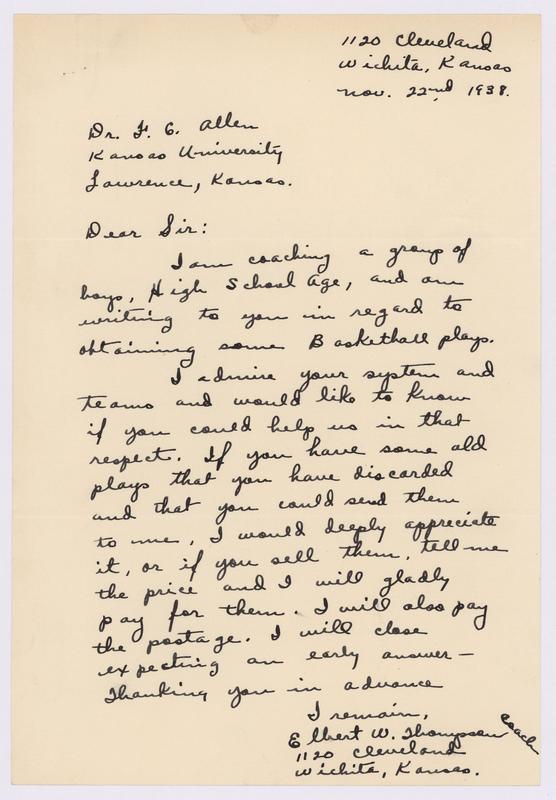 1120 Cleveland
Wichita, Kansas
Nov. 22nd, 1938.
Dr. F. C. Allen
Kansas University
Lawrence, Kansas.
Dear Sir:
I am coaching a group of
boys, High School Age, and am
writing to you in regard to
obtaining some Basketball plays.
I admire your system and
teams and would like to know
if you could help us in that
respect. If you have some old
plays that you have discarded
and that you could send them
to me, I would deeply appreciate
it, or if you sell them, tell me
the price and I will gladly
pay for them. I will also pay
the postage. I will close
expecting an early answer —
Thanking you in advance
I remain,
Elbert W. Thompson Coach
1120 Cleveland
Wichita, Kansas.